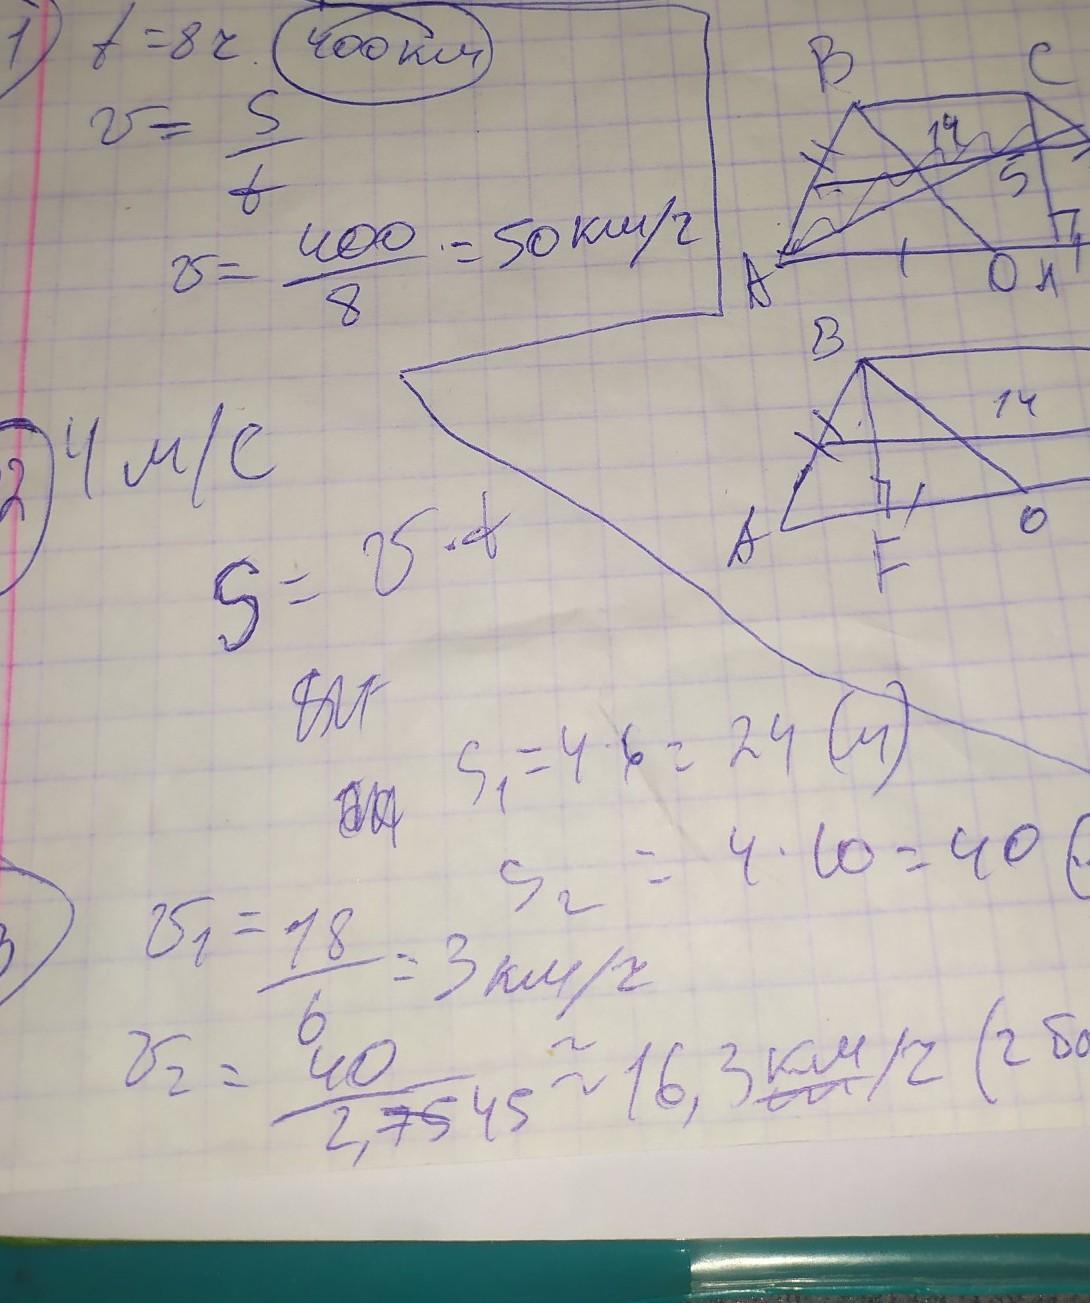 1) t=8ч. 400км
v= S/t
v= 400/8 =50км/ч
B C
14
5
A O H
B
14
A F O
2 4 м/с
S= v·t
S₁=4·6=24 (м)
S₂ = 4·10=40 (
3 v₁=18/6=3км/ч
v₂=40/2,45≈16,3км/ч (2 бо